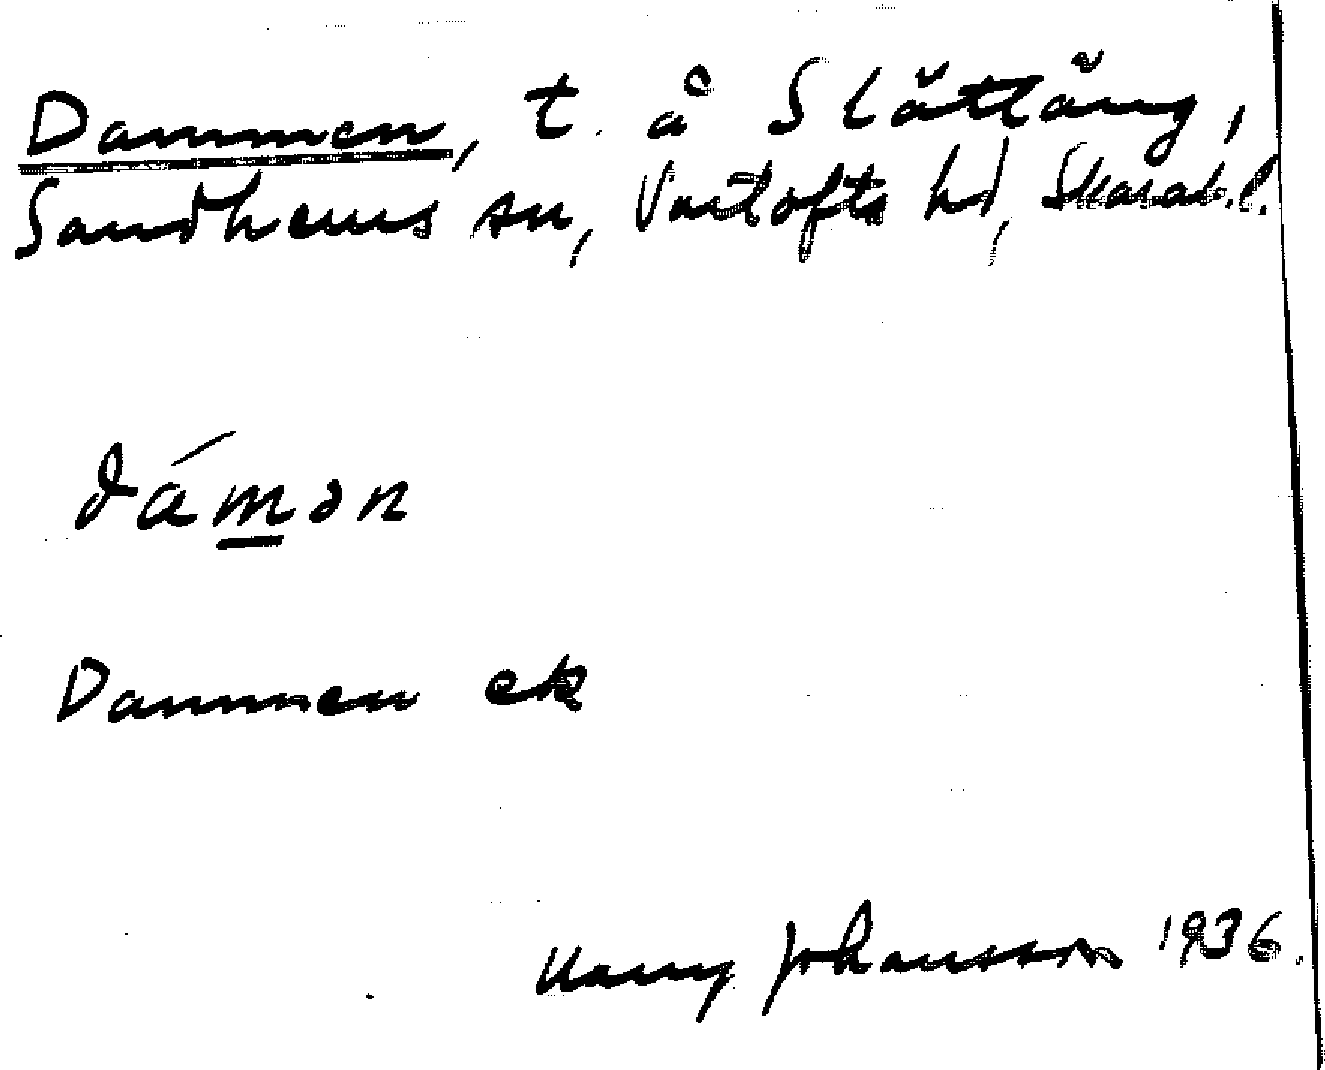 Dammen, t. å Slättäng,
Sandhems sn, Vartofts hd, Skarab.l.
dámən
Dammen ek
Harry Johansson 1936.